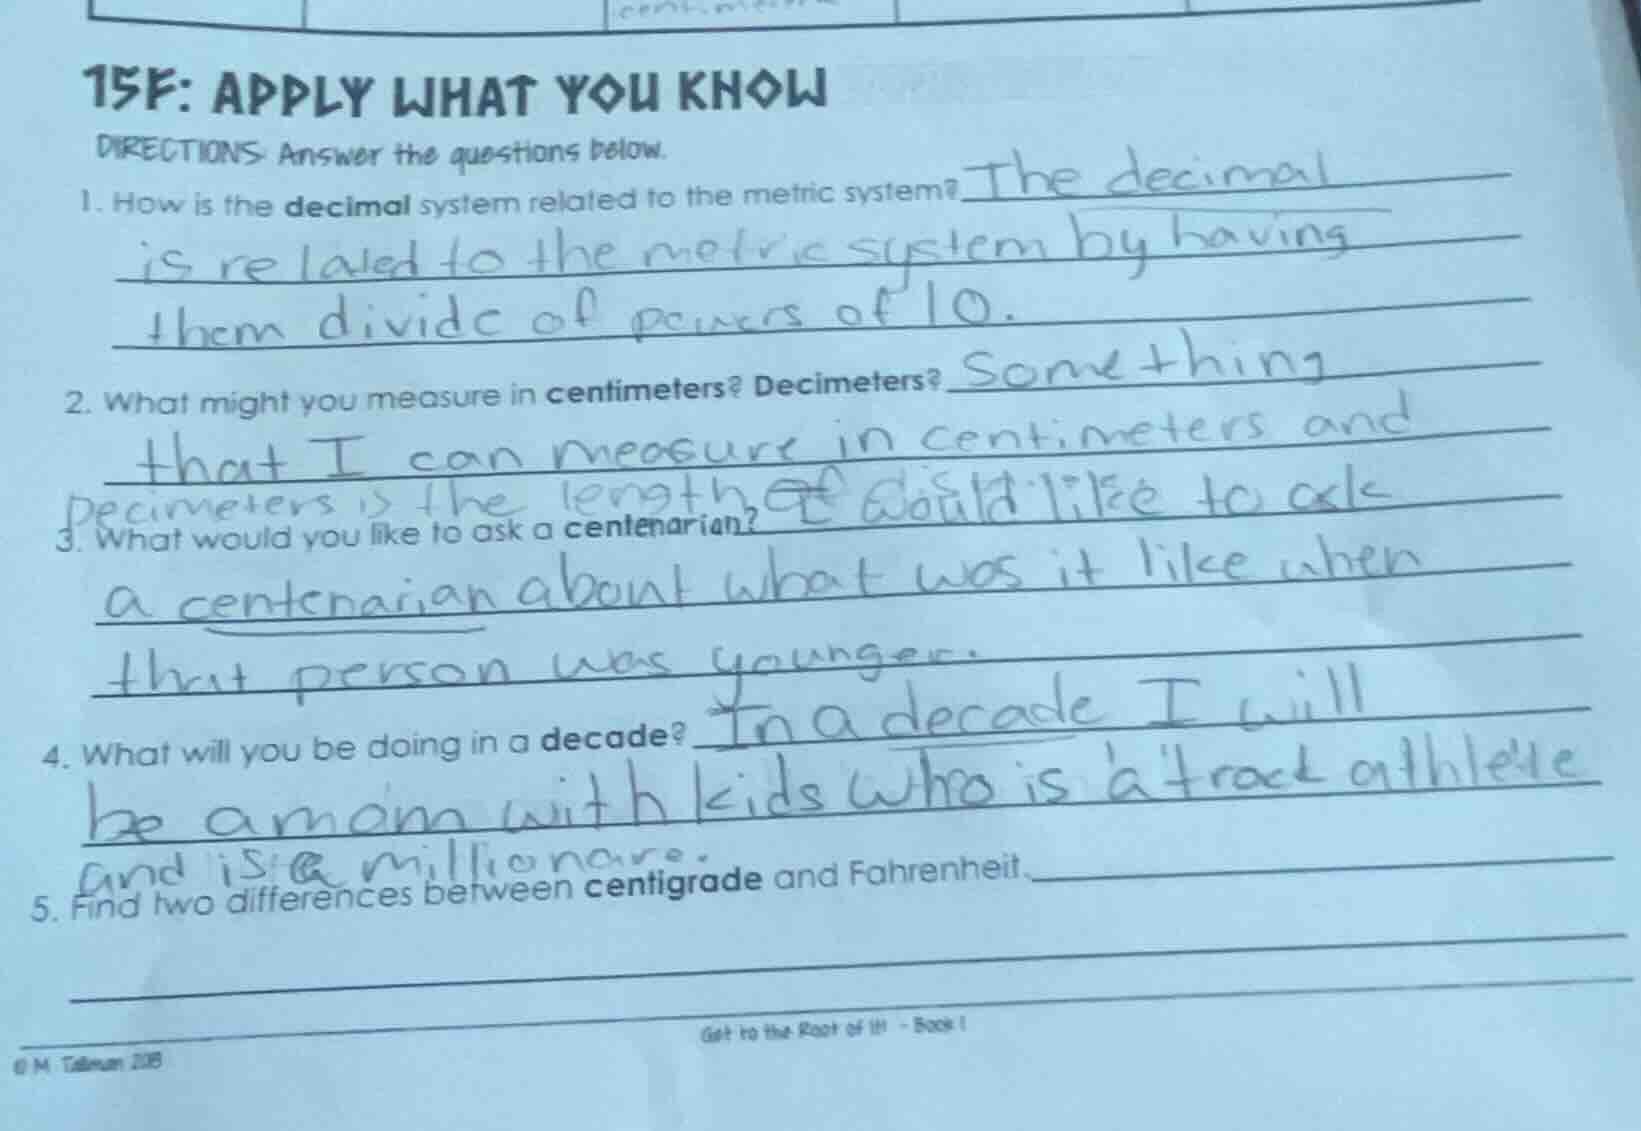 centimeter
15F: APPLY WHAT YOU KNOW
DIRECTIONS: Answer the questions below.
1. How is the decimal system related to the metric system? The decimal
is related to the metric system by having
them divide of powers of 10.
2. What might you measure in centimeters? Decimeters? Something
that I can measure in centimeters and
Decimeters is the length of
3. What would you like to ask a centenarian? I would like to ask
a centenarian about what was it like when
that person was younger.
4. What will you be doing in a decade? In a decade I will
be a mom with kids who is a track athlete
and is a millionare.
5. Find two differences between centigrade and Fahrenheit.
Get to the Root of It! - Book 1
© M. Tallman 2018